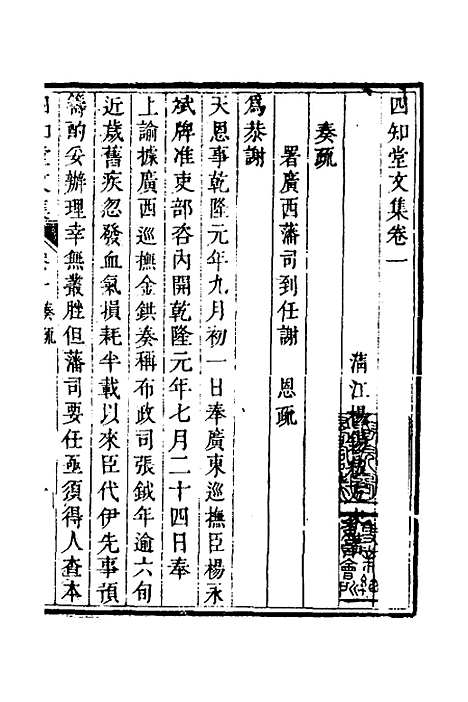 四知堂文集卷一
清江楊錫紱
奏疏
署廣西藩司到任謝　恩疏
爲恭謝
天恩事乾隆元年九月初一日奉廣東巡撫臣楊永
斌牌准吏部咨內開乾隆元年七月二十四日奉
上諭據廣西巡撫金鉷奏稱布政司張鉞年逾六旬
近歲舊疾忽發血氣損耗半載以來臣代伊先事預
籌酌妥辦理幸無叢脞但藩司要任亟須得人查本
四知堂文集　卷一　奏疏　一